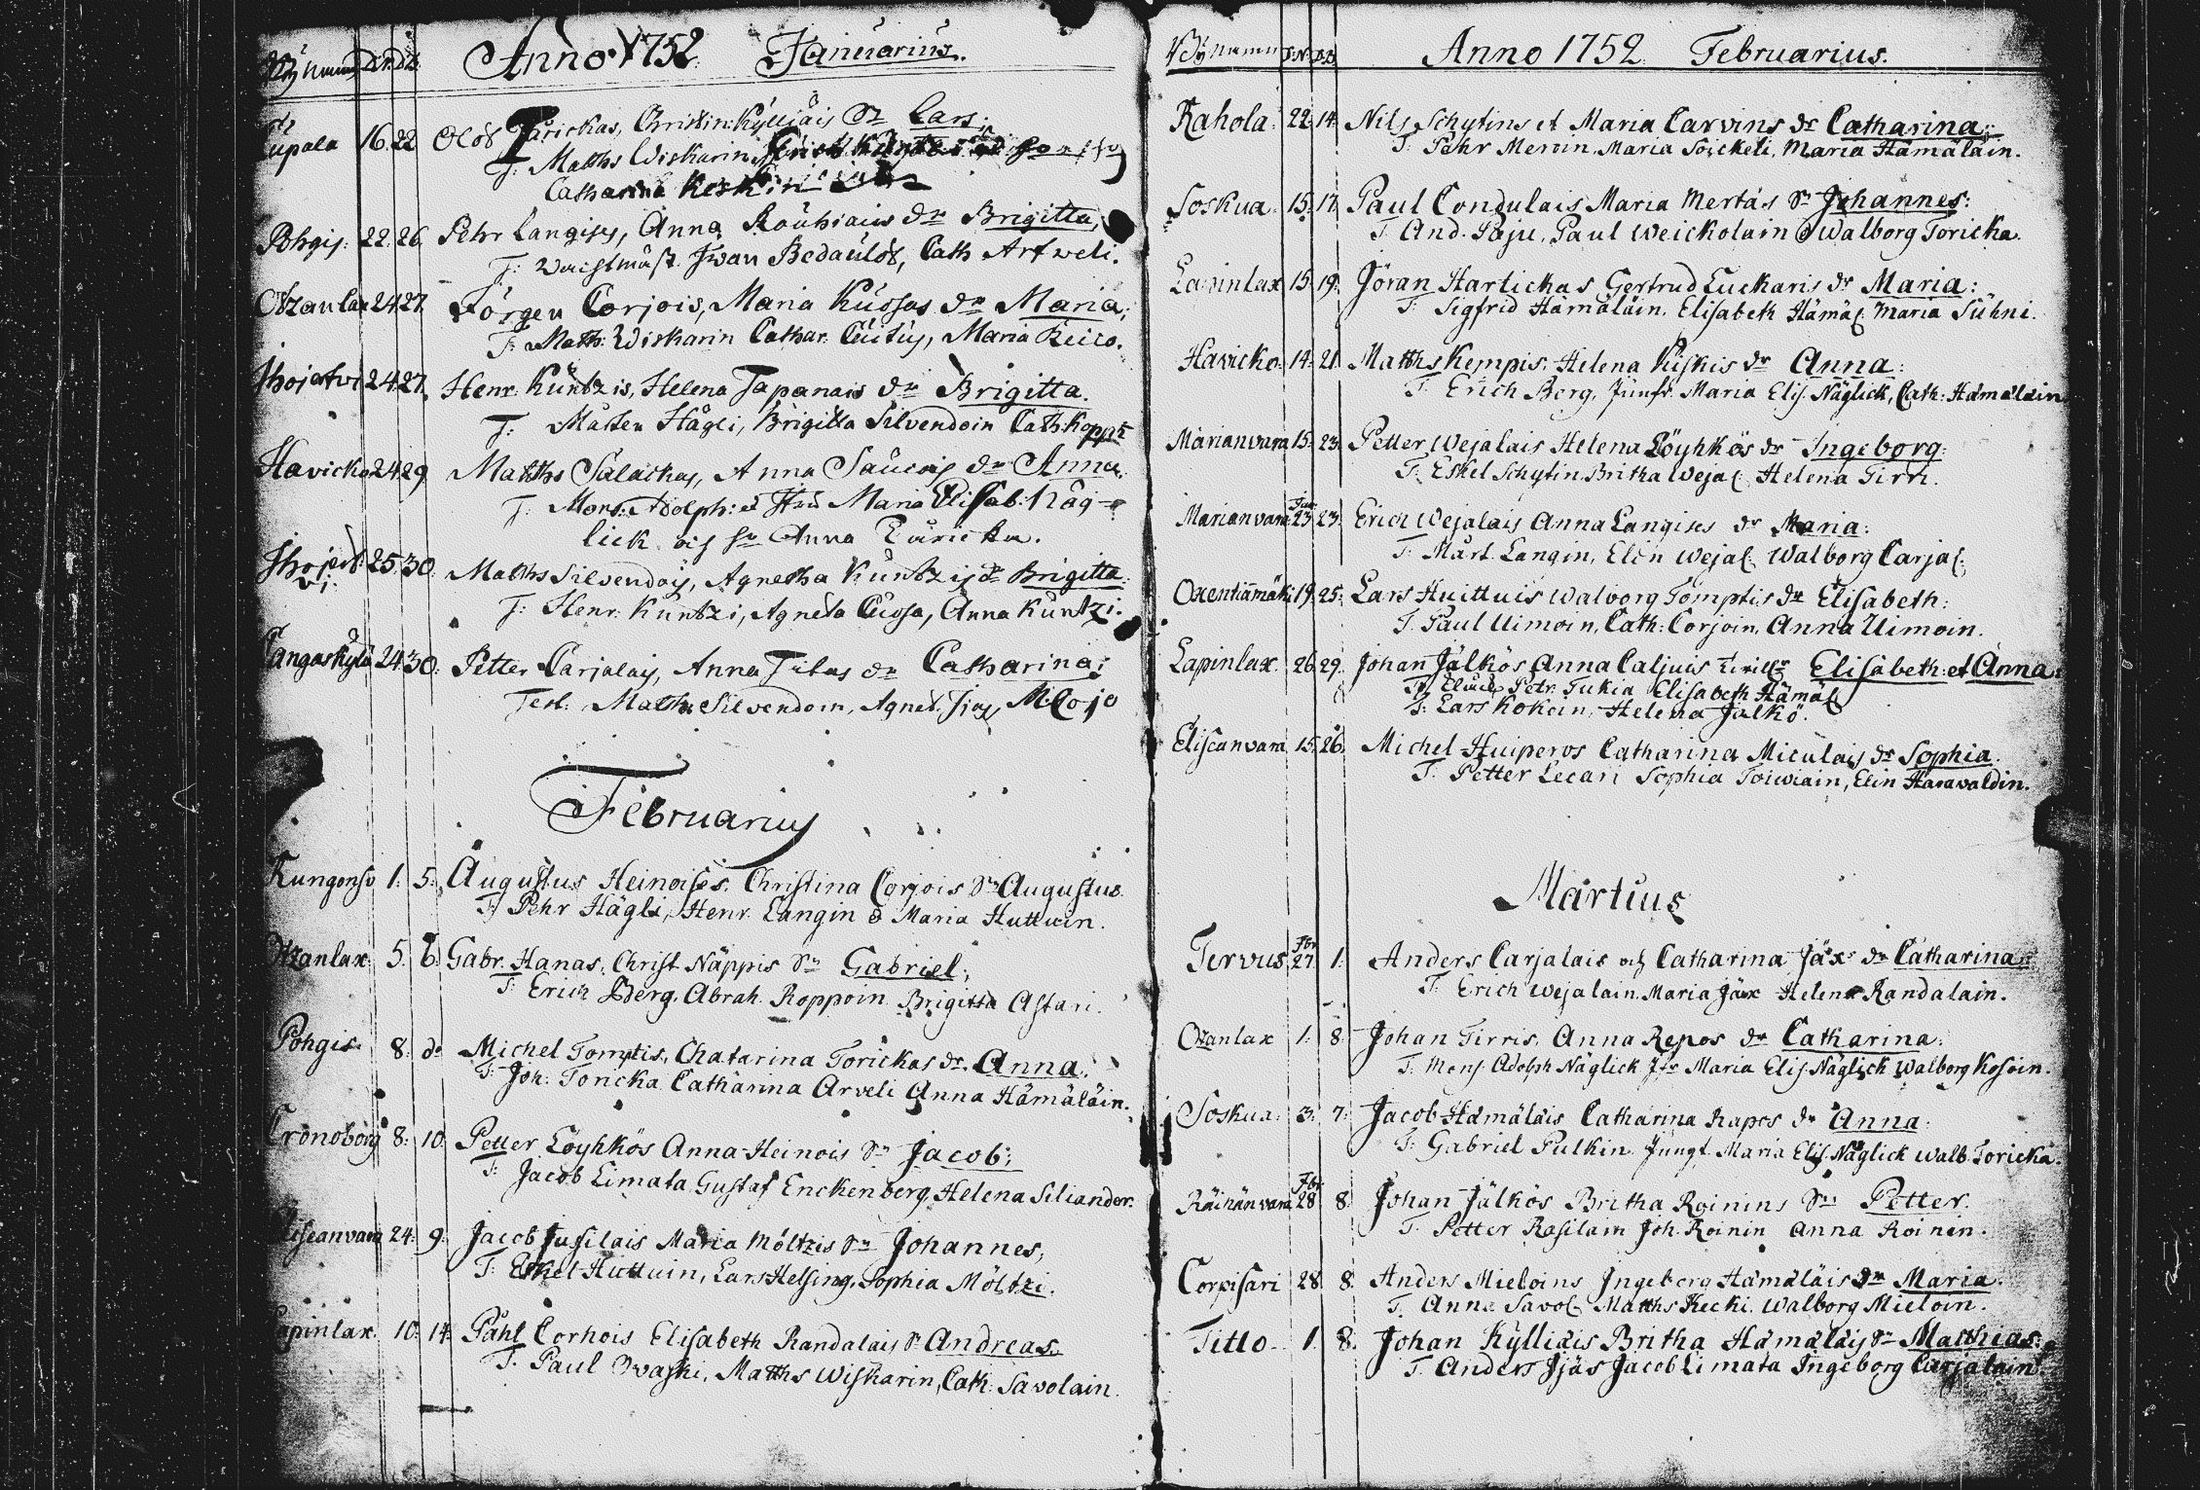 Anno 1752 Januarius.
upala 16. 22 Olof Tårickas, Christin: Kylliäis Sn Lars;
T: Matths Wiskarin,
Catharina
Pohgis: 22. 26. Pehr Langises, Anna Rouhiains dr Brigitta,
T: Wachtmäst. Iwan Bedaulof, Cath Arfweli.
Otzanlax 24 27. Jörgen Corjois, Maria Kuosas dr Maria;
T: Math: Wiskarin Cathar. Maria Reico.
Ihojerfvi 24 27. Henr. Kuntzis, Helena Tapanais dr Brigitta.
T: Mårten Hägli, Brigitta Silvendoin Cath: Koppa
Havicko 24 29 Matths Salackas, Anna Saucois dr Anna.
T: Mons: Adolph: et Maria Elisab: Näg=
lick och Anna Tåricka.
Ihojerf=vi: 25. 30. Matths Silvendois, Agnetha Kuntzis dr Brigitta.
T: Henr. Kuntzi, Agneta Cuosa, Anna Kuntzi.
Cangaskylä 24. 30. Petter Carjalais, Anna Titas dr Catharina;
Test: Matths Silvendoin, Agnet. M. Cojo
Februarius
Kungonso 1: 5: Augustus Heinoises, Christina Corjois Sn Augustus.
T: Pehr Hägli, Henr. Langin o Maria Huttuin.
Otzanlax 5. 6. Gabr. Hanas, Christ Näppis Sn Gabriel;
T: Erich Berg, Abrah. Roppoin Brigitta Astari.
Pohgis. 8: do Michel Tomptis, Chatarina Torickas dr. Anna.
T: Joh: Toricka Catharina Arveli Anna Hämäläin.
Cronoborg 8: 10. Petter Löyhkös Anna Heinois Sn Jacob;
T: Jacob Limata Gustaf Enckenberg, Helena Siliander.
liseanvara 24: 9: Jacob Jusilais Maria Möltzis Sn Johannes,
T: Eskel Huttuin, Lars Helsing, Sophia Möltzi.
apinlax. 10: 14: Påhl Corhois Elisabeth Randalais S. Andreas.
T. Paul Ovaski, Matths Wiskarin, Cath: Savolain.
Anno 1752 Februarius.
Rahola: 22: 14: Nils Schytins et Maria Carvins dr Catharina.
T: Pehr Mervin, Maria Soickeli, Maria Hämäläin.
Soskua: 15: 17. Paul Condulais Maria Mertäs Sn Johannes:
T: And. Paju, Paul Weickolain o Walborg Toricka.
Lapinlax 15: 19: Jöran Hartickas Gertrud Luckaris dr Maria:
T: Sigfrid Hämäläin, Elisabeth Hämäl: Maria Suhni.
Havicko: 14: 21. Matths Kempis, Helena Kiskis dr Anna:
T: Erich Berg, Jumfr. Maria Elis. Näglick, Cath: Hämäläin
Marianvara 15: 23. Petter Wejalais Helena Löyhkös dr Ingeborg:
T: Eskel Schytin Britha Wejal: Helena Tirri.
Marianvara Jan 23. 23. Erich Wejalais Anna Langises dr Maria:
T: Mårt. Langin, Elin Wejal: Walborg Carjal:
Oxentiämäki 19: 25: Lars Huittuis Walborg Tomptis dr Elisabeth:
T. Paul Uimoin, Cath: Corjoin, Anna Uimoin.
Lapinlax. 26. 29. Johan Jälkös Anna Caljuis Elisabeth: et Anna:
Petr. Tukia Elisabeth Hämäl:
T: Lars Kokoin, Helena Jälkö.
Eliseanvara 15. 26. Michel Huiperos Catharina Miculais dr Sophia.
T: Petter Lecari Sophia Toiwiain, Elin Harawaldin.
Martius
Tervus Feb 27. 1. Anders Carjalais och Catharina Jäxs dr Catharina.
T: Erich Wejalain, Maria Jäx Helena Randalain.
Otzanlax 1: 8. Johan Tirris, Anna Repos dr Catharina:
T: Mons. Adolph Näglick Jfr Maria Elis. Näglick Walborg Kosoin.
Soskua: 3: 7: Jacob Hämäläis Catharina Rapos dr Anna:
T: Gabriel Pulkin, Jungf. Maria Elis. Näglick Walb. Toricka.
Räihänvara Feb 28 8. Johan Jälkös Britha Roinins Sn Petter.
T. Petter Rasilain Joh. Roinin Anna Roinen.
Corpisari 28 8. Anders Mieloins Ingeborg Hämäläis dr Maria.
T. Anna Savol: Matths Kecki. Walborg Mieloin.
Titlo 1. 8. Johan Kylliäis Britha Hämäläis Sn Matthias.
T. Anders Jjäs Jacob Limata Ingeborg Carjalain.